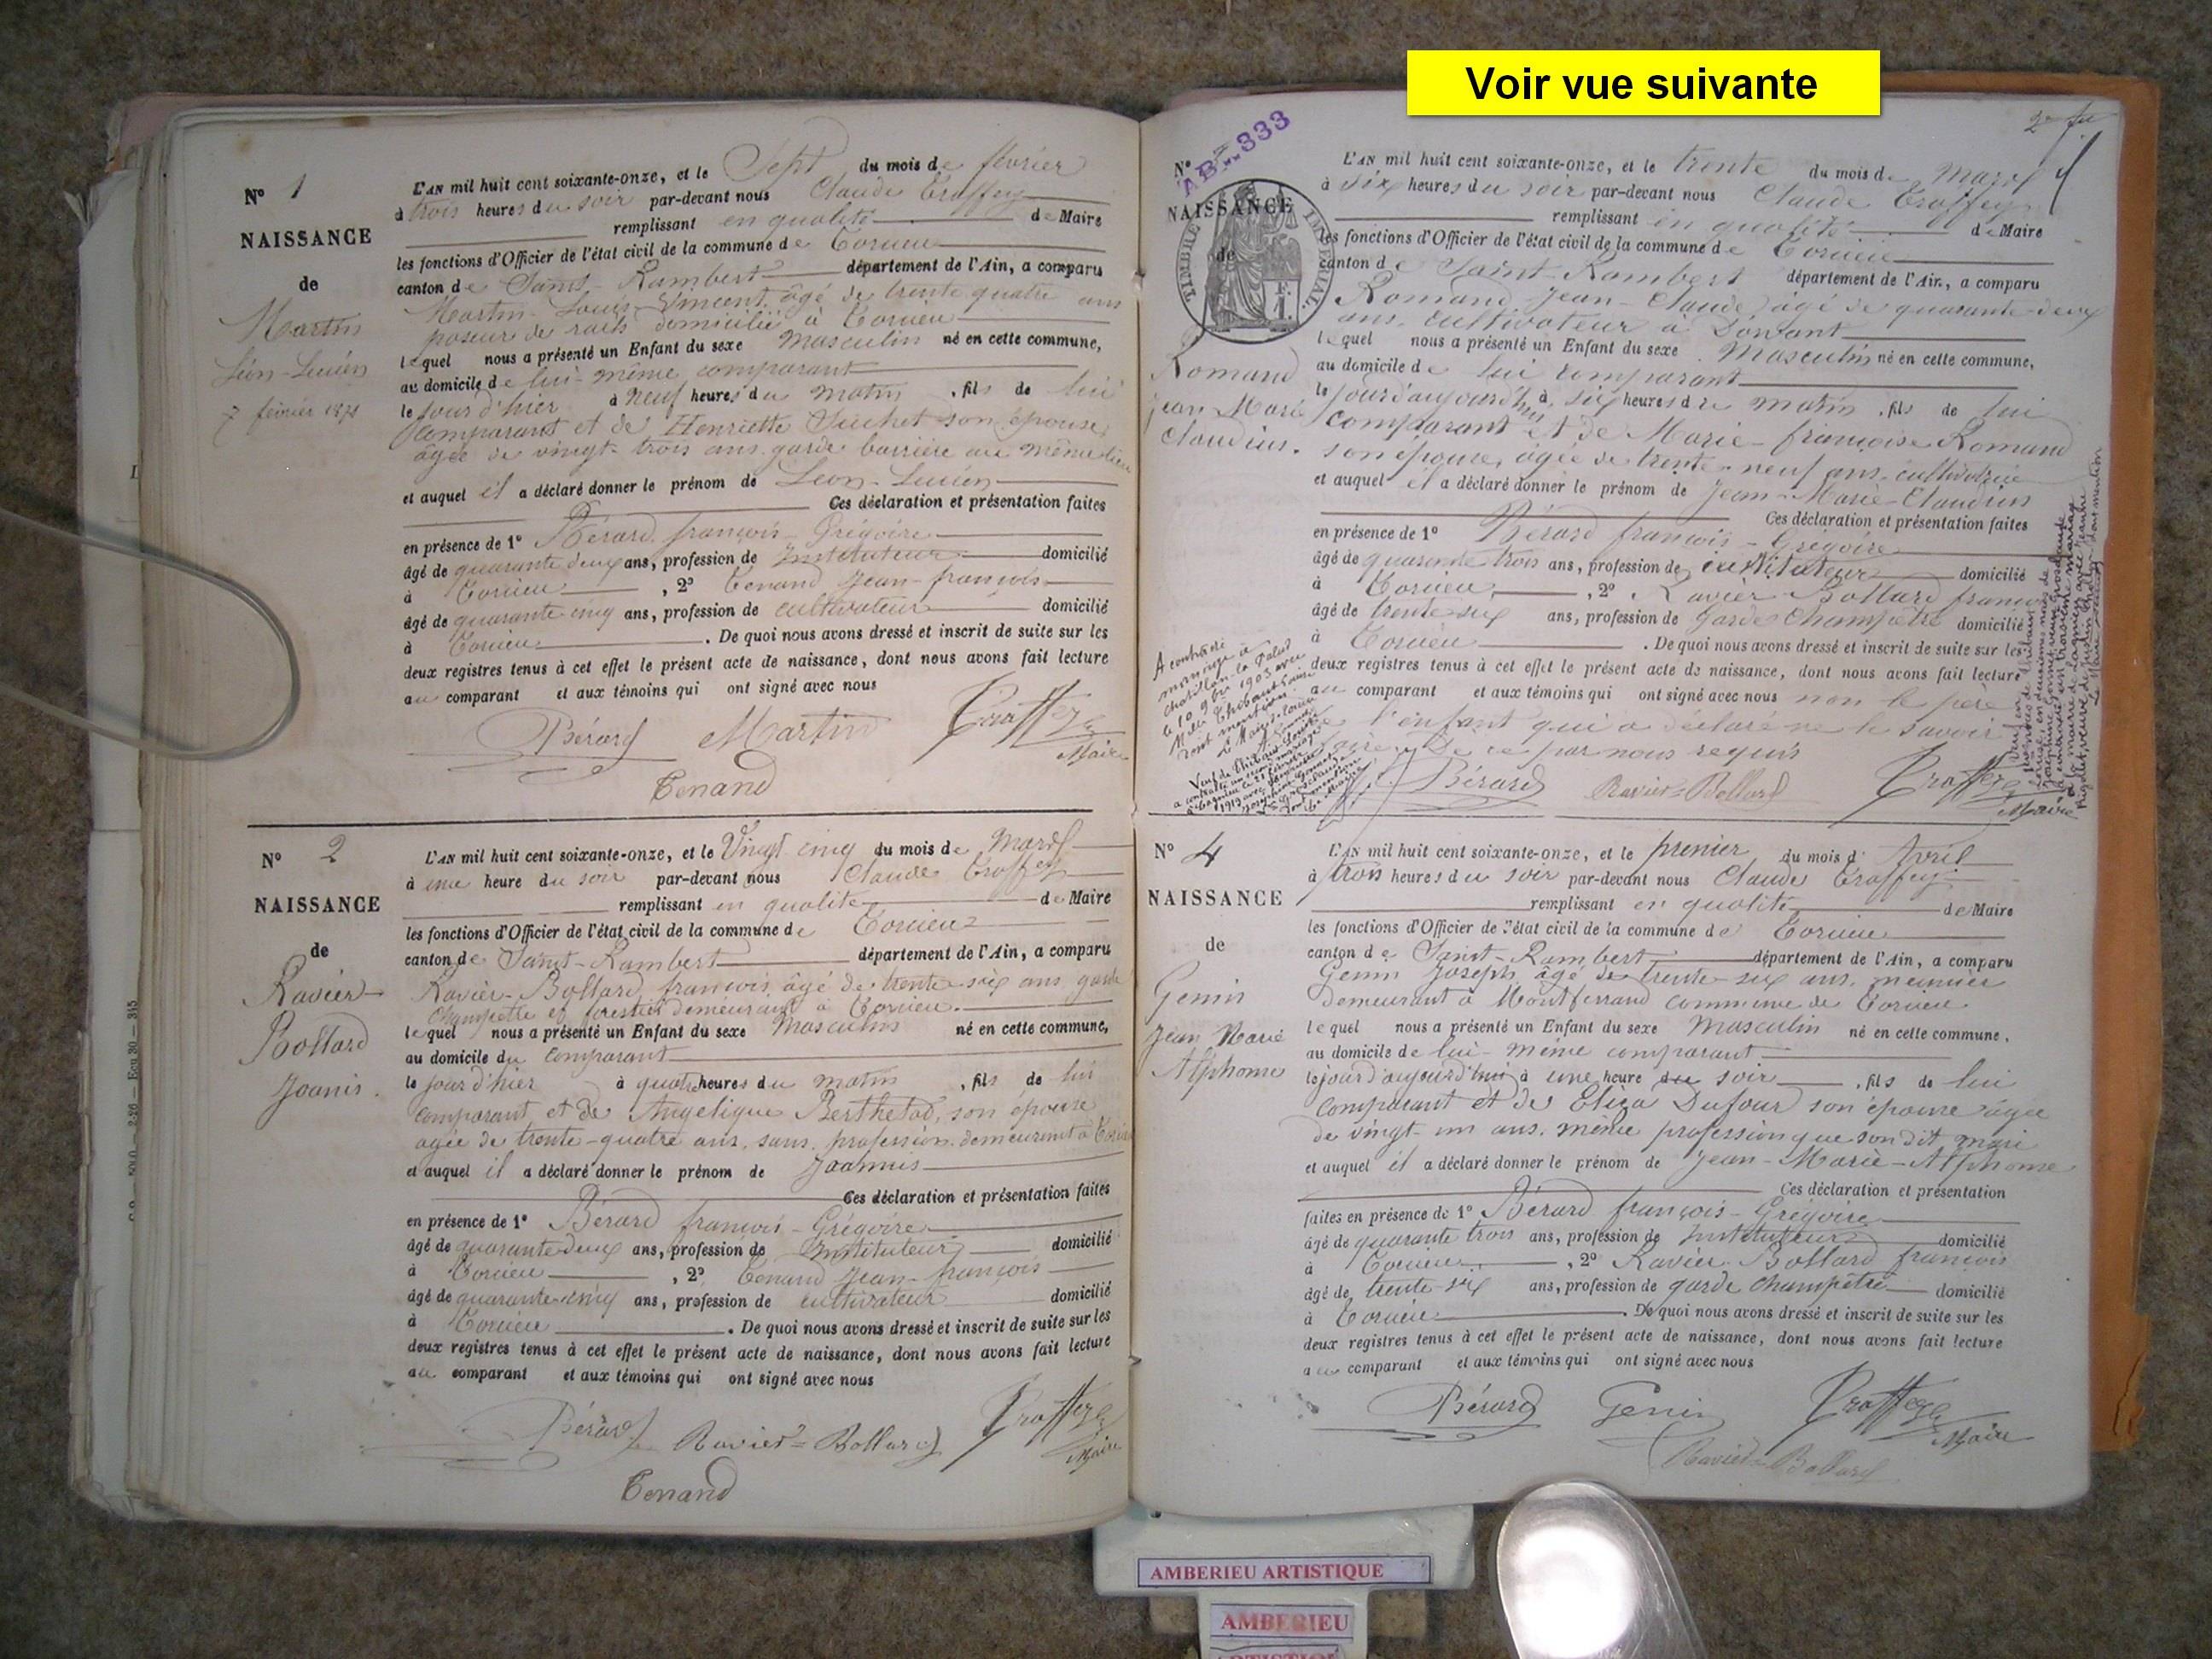 Voir vue suivante
N° 1
NAISSANCE
de
Martin
Léon-Lucien
7 février 1871
L'AN mil huit cent soixante-onze, et le Sept du mois de février
à trois heures du soir par-devant nous Claude Troffey
remplissant en qualité de Maire
les fonctions d'Officier de l'état civil de la commune de Torcieu
canton de Saint-Rambert département de l'Ain, a comparu
Martin Louis-Vincent, âgé de trente quatre ans
poseur de rails domicilié à Torcieu
lequel nous a présenté un Enfant du sexe Masculin né en cette commune,
au domicile de lui-même comparant
le jour d'hier à neuf heures du matin, fils de lui
comparant et de Henriette Suchet son épouse,
âgée de vingt-trois ans garde barrière au même lieu
et auquel il a déclaré donner le prénom de Léon-Lucien
Ces déclaration et présentation faites
en présence de 1° Bérard françois-Grégoire
âgé de quarante deux ans, profession de Instituteur domicilié
à Torcieu, 2° Tenand Jean-françois
âgé de quarante cinq ans, profession de cultivateur domicilié
à Torcieu. De quoi nous avons dressé et inscrit de suite sur les
deux registres tenus à cet effet le présent acte de naissance, dont nous avons fait lecture
au comparant et aux témoins qui ont signé avec nous
Bérard Martin Troffey
Maire
Tenand
N° 2
NAISSANCE
de
Ravier-
Bollard
Joanis.
L'AN mil huit cent soixante-onze, et le Vingt cinq du mois de Mars
à une heure du soir par-devant nous Claude Troffey
remplissant en qualité de Maire
les fonctions d'Officier de l'état civil de la commune de Torcieu
canton de Saint-Rambert département de l'Ain, a comparu
Ravier-Bollard francois, âgé de trente-six ans, garde
champêtre et forestier demeurant à Torcieu.
lequel nous a présenté un Enfant du sexe Masculin né en cette commune,
au domicile du comparant
le jour d'hier à quatre heures du matin, fils de lui
comparant et de Angelique Berthelod, son épouse
agée de trente-quatre ans, sans profession demeurant à Torcieu
et auquel il a déclaré donner le prénom de Joannis
Ces déclaration et présentation faites
en présence de 1° Bérard françois-Grégoire
âgé de quarante deux ans, profession de Instituteur domicilié
à Torcieu, 2° Tenand Jean-françois
âgé de quarante-cinq ans, profession de cultivateur domicilié
à Torcieu. De quoi nous avons dressé et inscrit de suite sur les
deux registres tenus à cet effet le présent acte de naissance, dont nous avons fait lecture
au comparant et aux témoins qui ont signé avec nous
Bérard Ravier-Bollard Troffey
Maire
Tenand
N°
AB..333
NAISSANCE
de
TIMBRE IMPÉRIAL
Romand
Jean Marie
Claudius.
L'AN mil huit cent soixante-onze, et le trente du mois de Mars
à six heures du soir par-devant nous Claude Troffey
remplissant en qualité de Maire
les fonctions d'Officier de l'état civil de la commune de Torcieu
canton de Saint-Rambert département de l'Ain, a comparu
Romand Jean-Claude, âgé de quarante-deux
ans, cultivateur à
lequel nous a présenté un Enfant du sexe Masculin né en cette commune,
au domicile de lui comparant
le jourd'aujourd'hui à six heures de matin, fils de lui
comparant et de Marie-françoise Romand
son épouse, agée de trente-neuf ans, cultivatrice
et auquel il a déclaré donner le prénom de Jean-Marie-Claudius
Ces déclaration et présentation faites
en présence de 1° Bérard françois-Grégoire
âgé de quarante trois ans, profession de instituteur domicilié
à Torcieu, 2° Ravier-Bollard francois
âgé de trente six ans, profession de Garde Champêtre domicilié
à Torcieu. De quoi nous avons dressé et inscrit de suite sur les
deux registres tenus à cet effet le présent acte de naissance, dont nous avons fait lecture
au comparant et aux témoins qui ont signé avec nous non le père
de l'enfant qui a déclaré ne le savoir
faire, de ce par nous requis
Bérard Ravier-Bollard Troffey
Maire
A contracté
mariage à
Chatillon-la-Palud
le 10 9bre 1903 avec
N° 4
NAISSANCE
de
Genin
Jean Marie
Alphonse
L'AN mil huit cent soixante-onze, et le premier du mois d'Avril
à trois heures du soir par-devant nous Claude Troffey
remplissant en qualité de Maire
les fonctions d'Officier de l'état civil de la commune de Torcieu
canton de Saint-Rambert département de l'Ain, a comparu
Genin Joseph, âgé de trente six ans, meunier
demeurant à Montferrand commune de Torcieu
lequel nous a présenté un Enfant du sexe Masculin né en cette commune,
au domicile de lui-même comparant
le jourd'aujourd'hui à une heure du soir, fils de lui
comparant et de Eliza Dufour son épouse agée
de vingt-un ans, même profession que son dit mari
et auquel il a déclaré donner le prénom de Jean-Marie-Alphonse
Ces déclaration et présentation
faites en présence de 1° Bérard françois-Grégoire
âgé de quarante trois ans, profession de Instituteur domicilié
à Torcieu, 2° Ravier Bollard françois
âgé de trente six ans, profession de garde champêtre domicilié
à Torcieu. De quoi nous avons dressé et inscrit de suite sur les
deux registres tenus à cet effet le présent acte de naissance, dont nous avons fait lecture
au comparant et aux témoins qui ont signé avec nous
Bérard Genin Troffey
Maire
Ravier-Bollard
AMBERIEU ARTISTIQUE
AMBERIEU
ARTISTIQUE